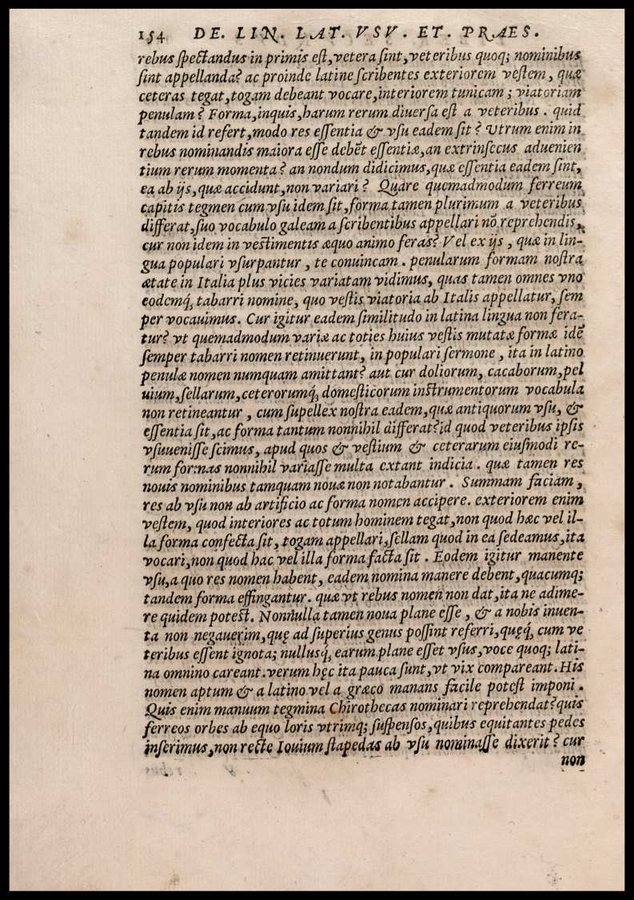 154 DE. LIN. LAT. VSV. ET. PRAES.
rebus spectandus in primis est, vetera sint, veteribus quoq; nominibus
sint appellanda? ac proinde latine scribentes exteriorem vestem, quæ
ceteras tegat, togam debeant vocare, interiorem tunicam; viatoriam
penulam? Forma, inquis, harum rerum diuersa est a veteribus. quid
tandem id refert, modo res essentia & vsu eadem sit? Vtrum enim in
rebus nominandis maiora esse debēt essentiæ, an extrinsecus aduenien
tium rerum momenta? an nondum didicimus, quæ essentia eadem sint,
ea ab ijs, quæ accidunt, non variari? Quare quemadmodum ferreum
capitis tegmen cum vsu idem sit, forma tamen plurimum a veteribus
differat, suo vocabulo galeam a scribentibus appellari nō reprehendis,
cur non idem in vestimentis æquo animo feras? Vel ex ijs, quæ in lin-
gua populari vsurpantur, te conuincam. penularum formam nostra
ætate in Italia plus vicies variatam vidimus, quas tamen omnes vno
eodemq́; tabarri nomine, quo vestis viatoria ab Italis appellatur, sem
per vocauimus. Cur igitur eadem similitudo in latina lingua non fera-
tur? vt quemadmodum variæ ac toties huius vestis mutatæ formæ idē
semper tabarri nomen retinuerunt, in populari sermone, ita in latino
penulæ nomen numquam amittant? aut cur doliorum, cacaborum, pel
uium, sellarum, ceterorumq́; domesticorum instrumentorum vocabula
non retineantur, cum supellex nostra eadem, quæ antiquorum vsu, &
essentia sit, ac forma tantum nonnihil differat? id quod veteribus ipsis
vsuuenisse scimus, apud quos & vestium & ceterarum eiusmodi re-
rum formas nonnihil variasse multa extant indicia. quæ tamen res
nouis nominibus tamquam nouæ non notabantur. Summam faciam,
res ab vsu non ab artificio ac forma nomen accipere. exteriorem enim
vestem, quod interiores ac totum hominem tegat, non quod hæc vel il-
la forma confecta sit, togam appellari, sellam quod in ea sedeamus, ita
vocari, non quod hac vel illa forma facta sit. Eodem igitur manente
vsu, a quo res nomen habent, eadem nomina manere debent, quacumq;
tandem forma effingantur. quæ vt rebus nomen non dat, ita ne adime-
re quidem potest. Nonnulla tamen noua plane esse, & a nobis inuen-
ta non negauerim, quę ad superius genus possint referri, quęq́; cum ve
teribus essent ignota; nullusq́; earum plane esset vsus, voce quoq; lati-
na omnino careant. verum hęc ita pauca sunt, vt vix compareant. His
nomen aptum & a latino vel a græco manans facile potest imponi.
Quis enim manuum tegmina Chirothecas nominari reprehendat? quis
ferreos orbes ab equo loris vtrimq; suspensos, quibus equitantes pedes
inserimus, non recte Iouium stapedas ab vsu nominasse dixerit? cur
non